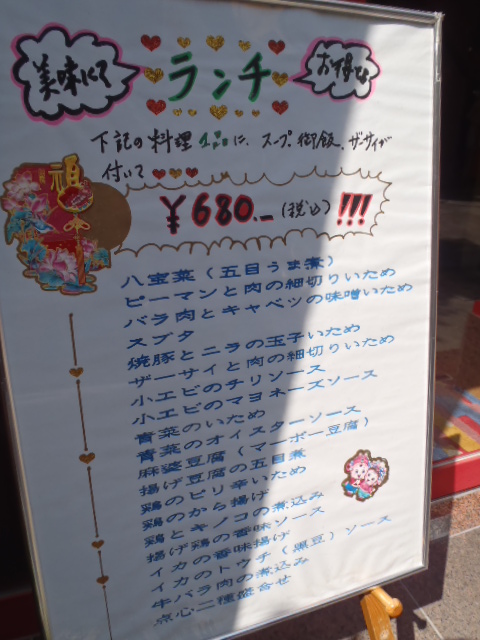 美味にて
ランチ
お得な
下記の料理1品に、スープ、御飯、ザーサイが
付いて
¥680.-(税込)!!!
八宝菜(五目うま煮)
ピーマンと肉の細切りいため
バラ肉とキャベツの味噌いため
スブタ
焼豚とニラの玉子いため
ザーサイと肉の細切りいため
小エビのチリソース
小エビのマヨネーズソース
青菜のいため
青菜のオイスターソース
麻婆豆腐(マーボー豆腐)
揚げ豆腐の五目煮
鶏のピリ辛いため
鶏のから揚げ
鶏とキノコの煮込み
揚げ鶏の香味ソース
イカの香味揚げ
イカのトウチ(黒豆)ソース
牛バラ肉の煮込み
点心二種盛合せ